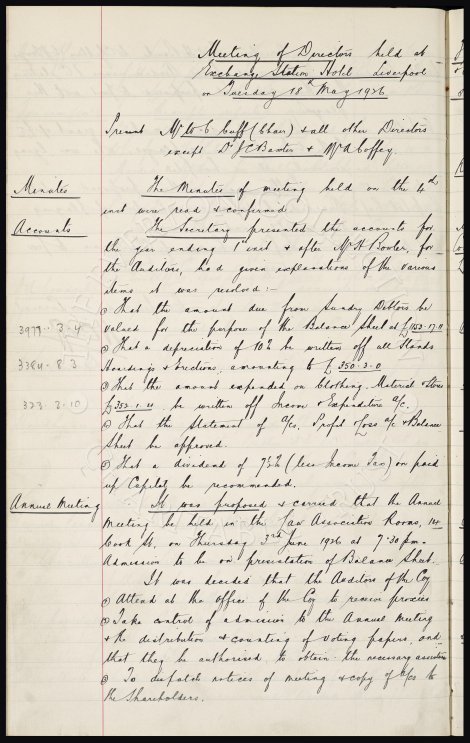 Meeting of Directors held at
Exchange Station Hotel Liverpool
on Tuesday 18th May 1926
Present Mr W C Cuff (Chair) & all other Directors
except Dr J C Baxter & Mr A Coffey.
Minutes The Minutes of meeting held on the 4th
inst were read & confirmed
Accounts The Secretary presented the accounts for
the year ending 1st inst & after Mr H Bowler, for
the Auditors, had given explanations of the various
items it was resolved:-
That the amount due from Sundry Debtors be
valued for the purpose of the Balance Sheet at £1153.17.11
3977.3.4
That a depreciation of 10% be written off all Stands
Hoardings & Erections, amounting to £350.3.0
3384.8.3
That the amount expended on Clothing, Material & Stores
£352.1.11 be written off Income & Expenditure a/c.
323.2.10
That the Statement of a/cs, Profit & Loss a/c & Balance
Sheet be approved.
That a dividend of 7½% (less Income Tax) on paid
up Capital be recommended.
Annual Meeting It was proposed & carried that the Annual
Meeting be held in the Law Association Rooms, 14
Cook St, on Thursday 3rd June 1926 at 7.30 pm.
Admission to be on presentation of Balance Sheet.
It was decided that the Auditors of the Coy
Attend at the office of the Coy to receive proxies
Take control of admission to the Annual Meeting
& the distribution & counting of voting papers, and
that they be authorised to obtain the necessary assistance
To despatch notices of meeting & copy of a/cs to
the Shareholders.